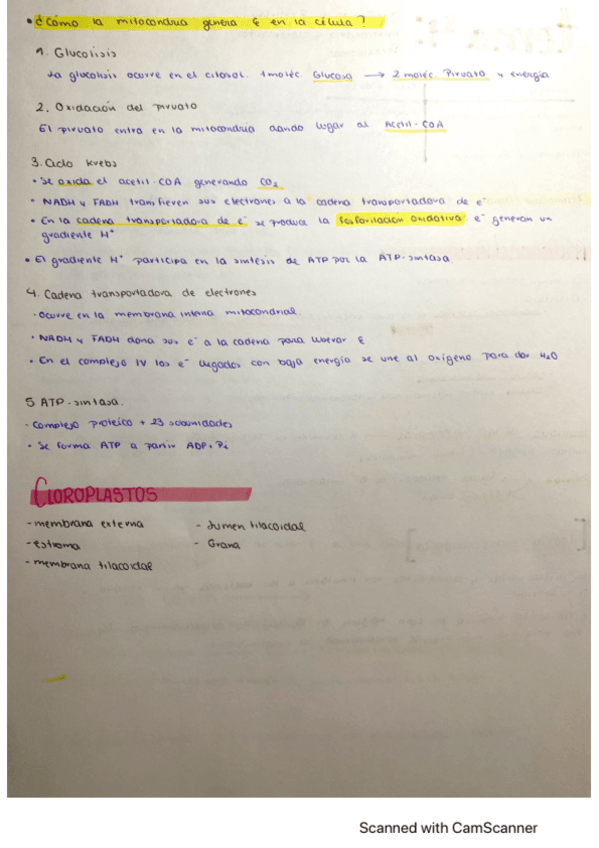 • ¿Cómo la mitocondria genera E en la célula?
1. Glucolisis
La glucolisis ocurre en el citosol. 1 moléc. Glucosa → 2 moléc. Piruvato y energía
2. Oxidación del piruvato
El piruvato entra en la mitocondria dando lugar al Acetil-COA
3. Ciclo Krebs
• Se oxida el acetil-COA generando CO₂
• NADH y FADH transfieren sus electrones a la cadena transportadora de e⁻
• En la cadena transportadora de e⁻ se produce la fosforilación oxidativa e⁻ generan un
gradiente H⁺
• El gradiente H⁺ participa en la síntesis de ATP por la ATP-sintasa
4. Cadena transportadora de electrones
• Ocurre en la membrana interna mitocondrial.
• NADH y FADH dona sus e⁻ a la cadena para liberar E
• En el complejo IV los e⁻ cargados con baja energía se une al oxígeno para dar H₂O
5 ATP-sintasa.
- Complejo proteico + 23 subunidades
• Se forma ATP a partir ADP + Pi
CLOROPLASTOS
- membrana externa
- estroma
- membrana tilacoidal
- Lumen tilacoidal
- Grana
Scanned with CamScanner